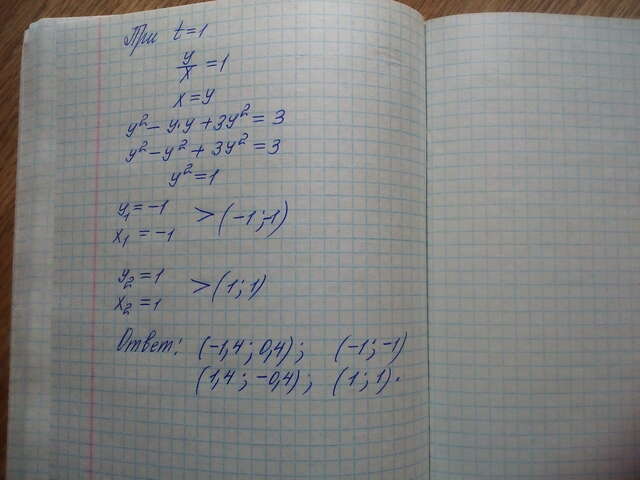 При t=1
y/x =1
x=y
y²- y·y+3y²= 3
y²-y²+ 3y²=3
y²=1
y₁=-1
x₁ =-1
>(-1;-1)
y₂=1
x₂=1
>(1;1)
Ответ: (-1,4; 0,4); (-1;-1)
(1,4; -0,4); (1; 1).